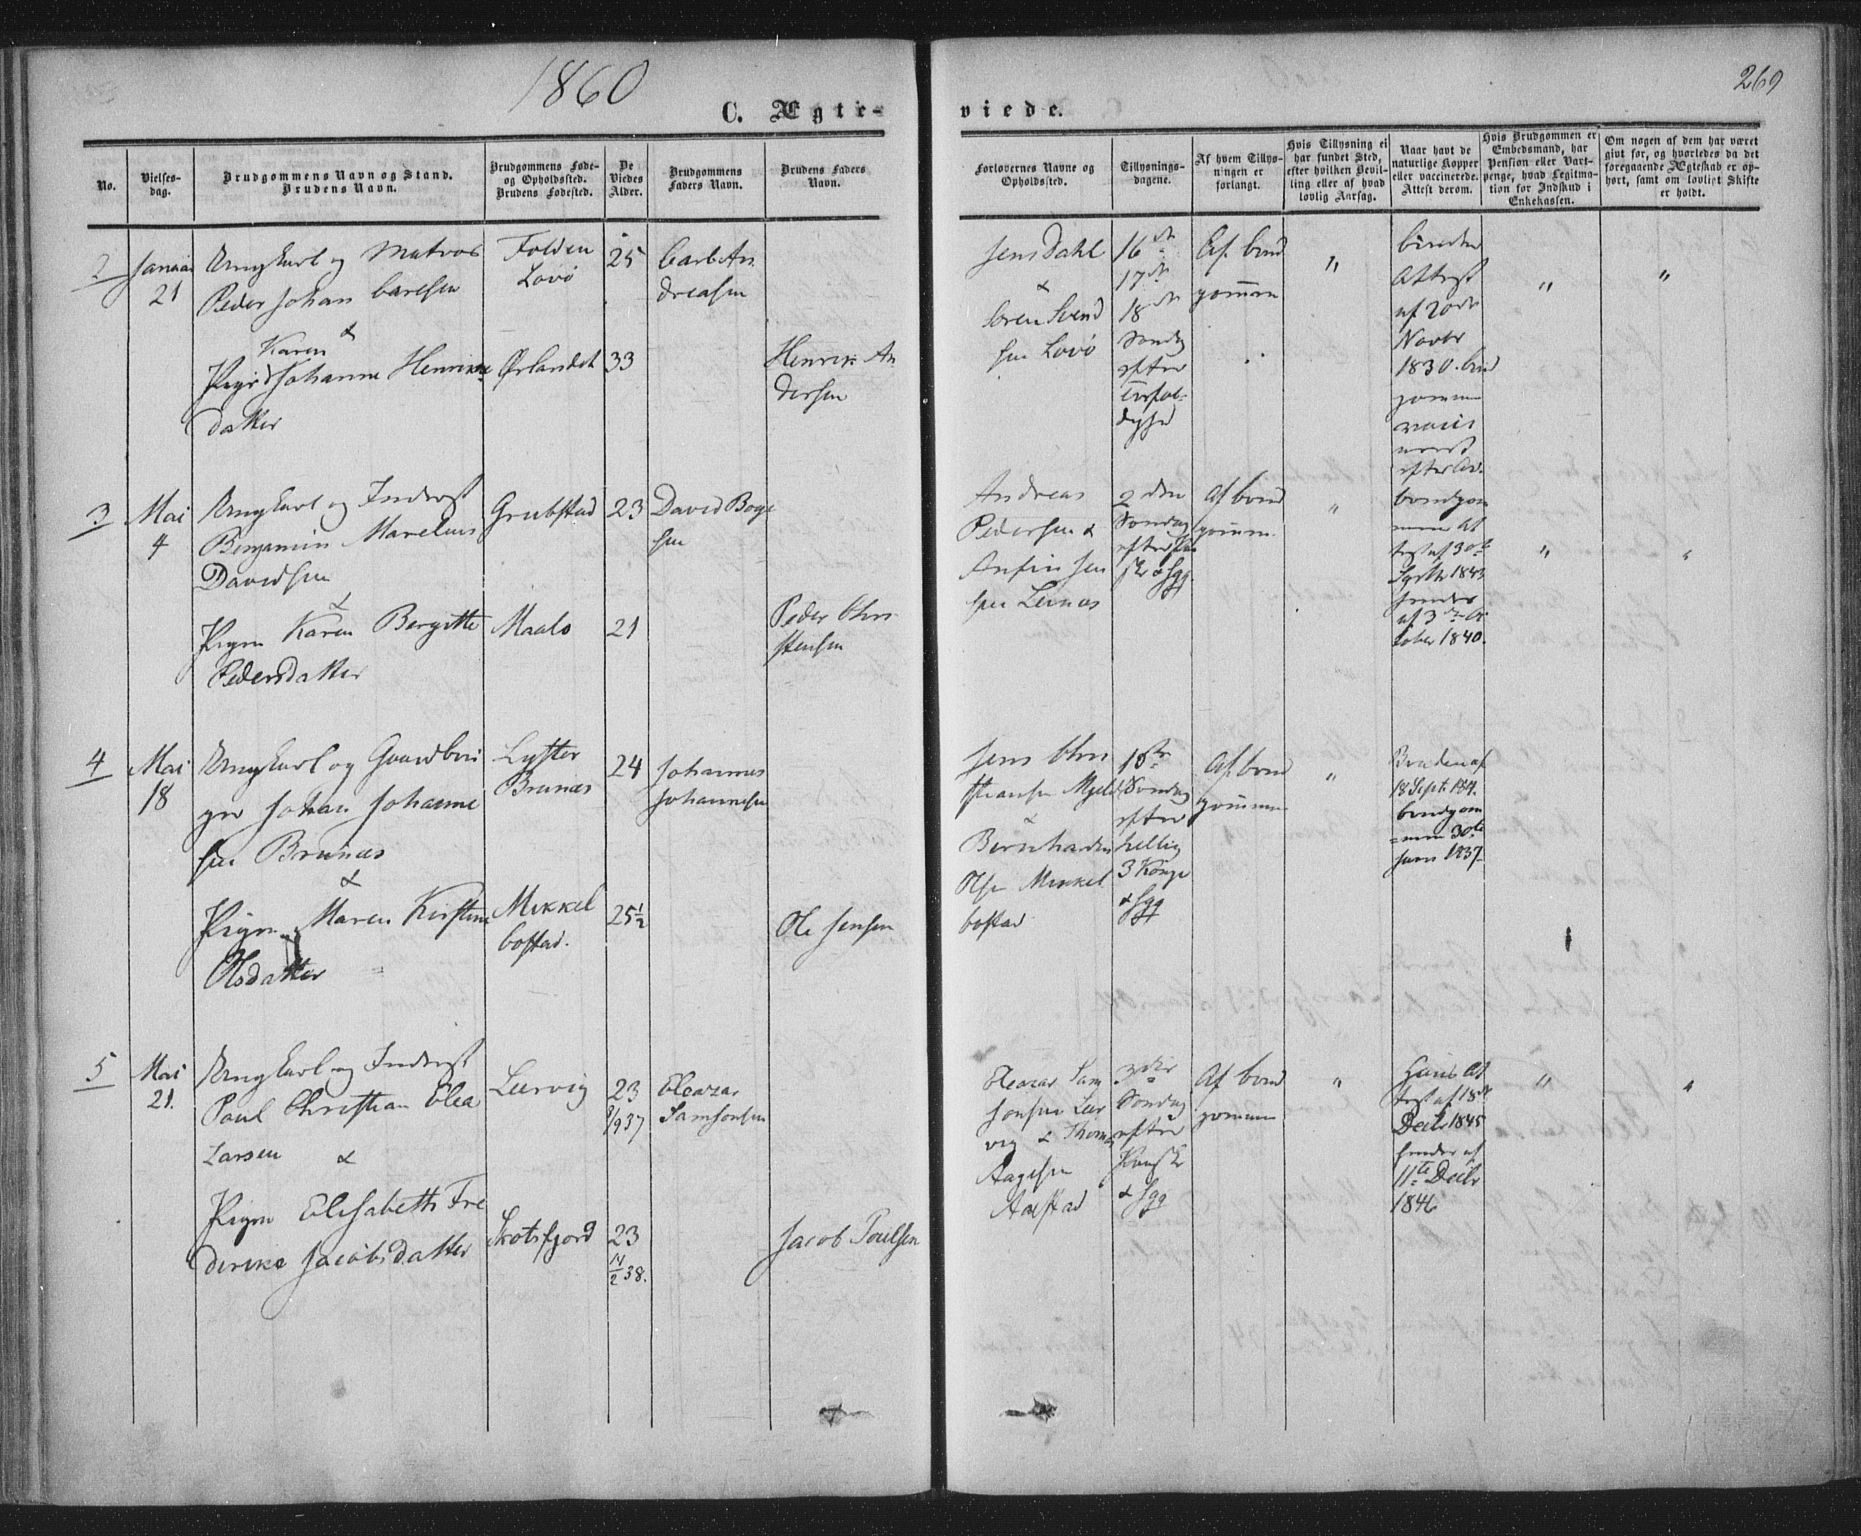 1860
269
C. Ægte-
viede.
No.
Vielses-
dag.
Brudgommens Navn og Stand.
Brudens Navn.
Brudgommens Føde-
og Opholdssted.
Brudens Fødested.
De
Viedes
Alder.
Brudgommens
Faders Navn.
Brudens Faders
Navn.
Forlovernes Navne og
Opholdssted.
Tillysnings-
dagene.
Af hvem Tillys-
ningen er
forlangt.
Hvis Tillysning ei
har fundet Sted,
efter hvilken Bevil-
ling eller af hvad
lovlig Aarsag.
Naar havt de
naturlige Kopper
eller vaccinerede.
Attest derom.
Hvis Brudgommen er
Embedsmand, har
Pension eller Vart-
penge, hvad Legitima-
tion for Indskud i
Enkekassen.
Om nogen af dem har været
givt før, og hvorledes da det
foregaaende Ægteskab er op-
hørt, samt om lovligt Skifte
er holdt.
2
Januar
21
Ungkarl og Matros
Peder Johan Carlsen
&
Karen
Pige Johanna Henrikke
datter
Folden
Lovö
Ørlandet
25
33
Carl An
dreasen
Henrik An
dersen
Jens Dahl
&
Sören Svend
sen Lovö
16de
17de
18de
Söndag
efter
Trefol-
dighed
Af brud
gommen
"
Attest
af 20de
Novbr
1830. brud
gommen
"
"
3
Mai
4
Ungkarl og Inderst
Benjamin Marelius
Davidsen
&
Pigen Karen Bergitte
Pedersdatter
Grubstad
Maalö
23
21
David Boye
sen
Peder Chri
stensen
Andreas
Pedersen &
Anfin Jen
sen Leinæs
2den
Söndag
efter Paa
ske & flgg.
Af brud
gomm.
"
brudgom
men At
test af 30te
Septbr 1843
hendes
af 3de Oc
tober 1840.
"
"
4
Mai
18
Ungkarl og Gaardbru
ger Johan Johanne
sen Brunæs
&
Pigen Maren Kirstine
Olsdatter
Lyster
Brunæs
Mikkel
bostad.
24
25½
Johannes
Johannesen
Ole Jensen
Jens Chri
stiansen Mjelde
&
Bernhard
Olsen Mikkel
bostad
1ste
Söndag
efter
hellig
3 Konge
& flgg
Af brud
gommen
"
Bruden af
18 Sept. 184.
brudgom
=men 30te
Juni 1837.
5
Mai
21.
Ungkarl og Inderst
Paul Christian Elea
Larsen &
Pigen Elisabeth Fre
derike Jacobsdatter
Leervig
Skotsfjord
23
9/9 37
23
11/2 38.
Eleazar
Samsonsen
Jacob Poulsen
Eleazar Sam
sonsen Leer
vig & Thomas
Aagesen
Axstad
3die
Söndag
efter
Paaske
& flgg
Af brud
gommen
"
Hans At
test af 18de
Decbr 1845
hendes af
11te Decbr
1846
"
"